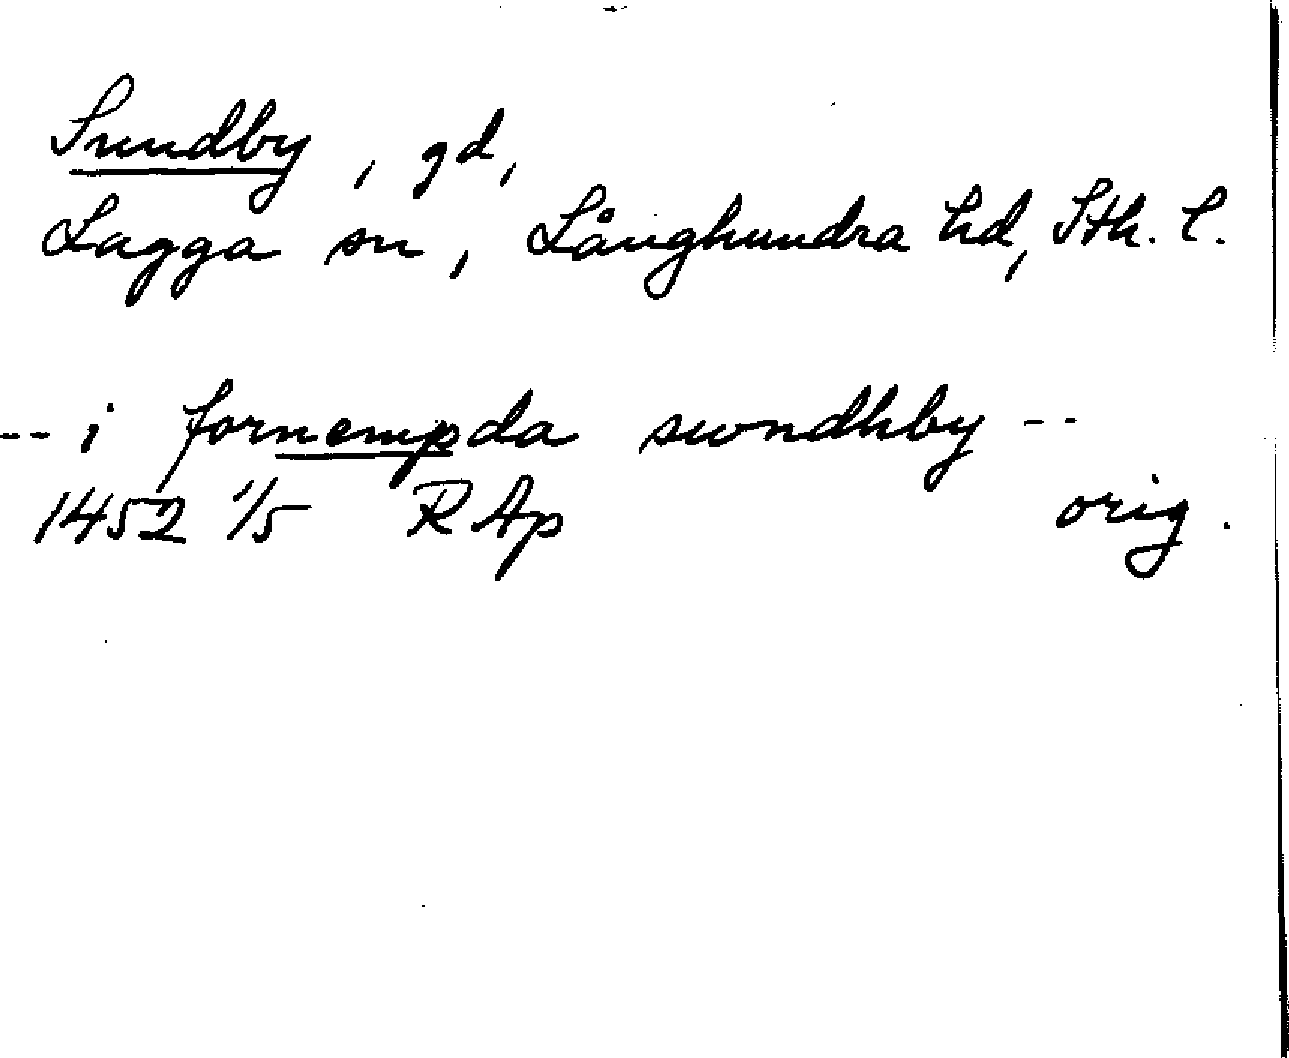 Sundby, gd,
Lagga sn, Långhundra hd, Sth. l.
-- i fornempda swndhby --
1452 1/5 RAp orig.